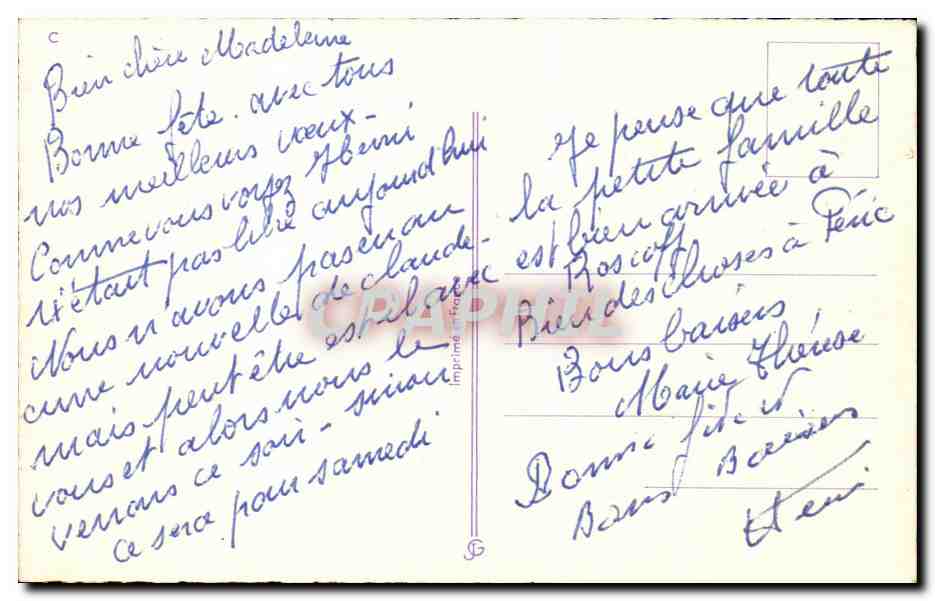 C
Bien chère Madeleine
Bonne fête avec tous
nos meilleurs vœux-
Comme vous voyez Henri
n'était pas libre aujourd'hui
Nous n'avons pas eu
une nouvelle de Claude-
mais peut être est-il avec
vous et alors nous le
verrons ce soir - sinon
ce sera pour samedi
Imprimé en France
Je pense que toute
la petite famille
est bien arrivée à
Roscoff
Bien des choses à
Bons baisers
Marie Thérèse
Bonne fête et
Bons Baisers
Henri
CPAPHIL